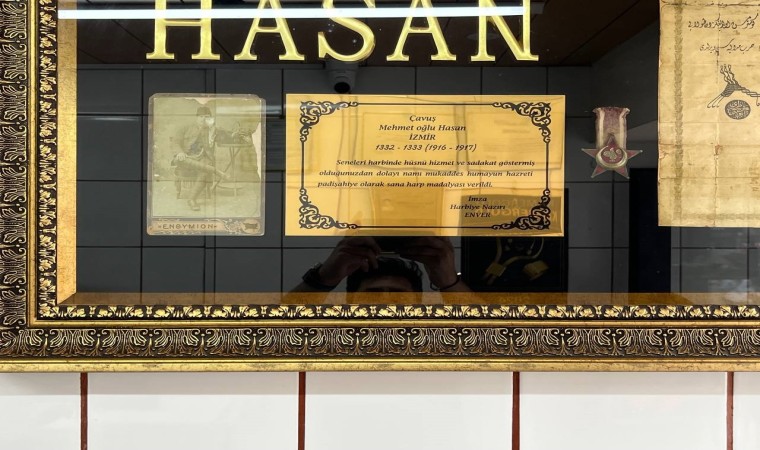 HASAN
Çavuş
Mehmet oğlu Hasan
İZMİR
1332 - 1333 (1916 - 1917)
Seneleri harbinde hüsnü hizmet ve sadakat göstermiş
olduğunuzdan dolayı namı mukaddes humayun hazreti
padişahiye olarak sana harp madalyası verildi.
İmza
Harbiye Nazırı
ENVER
ENDYMION